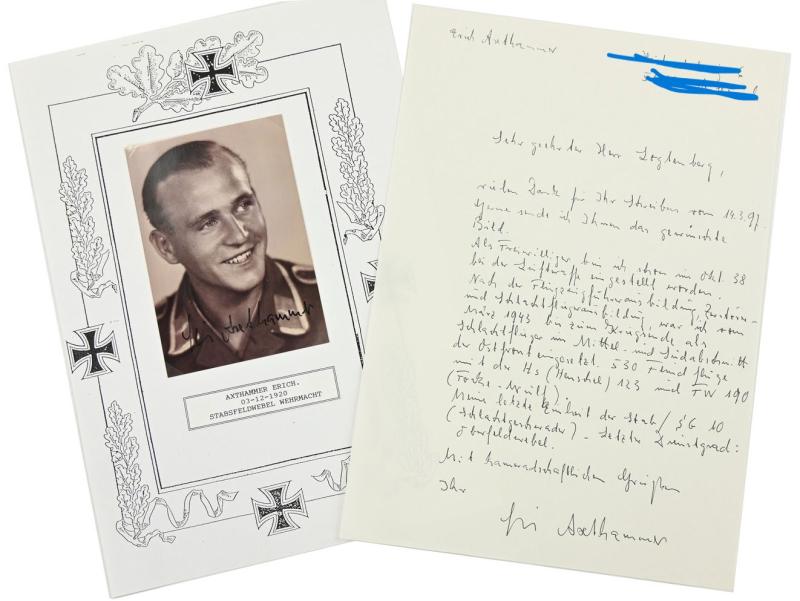 Axthammer
AXTHAMMER ERICH.
03-12-1920
STABSFELDWEBEL WEHRMACHT
Erich Axthammer
Sehr geehrter Herr Logtenberg,
vielen Dank für Ihr Schreiben vom 14.3.97.
Gerne sende ich Ihnen das gewünschte
Bild.
Als Freiwilliger bin ich schon im Okt. 38
bei der Luftwaffe eingestellt worden.
Nach der Flugzeugführerausbildung, Zerstörer-
und Schlachtfliegerausbildung, war ich vom
März 1943 bis zum Kriegsende als
Schlachtflieger im Mittel- und Südabschnitt
der Ostfront eingesetzt. 530 Feindflüge
mit der Hs (Henschel) 123 und FW 190
(Focke-Wulf).
Meine letzte Einheit der Stab/SG 10
(Schlachtgeschwader) - Letzter Dienstgrad:
Oberfeldwebel.
Mit kameradschaftlichen Grüßen
Ihr
Axthammer